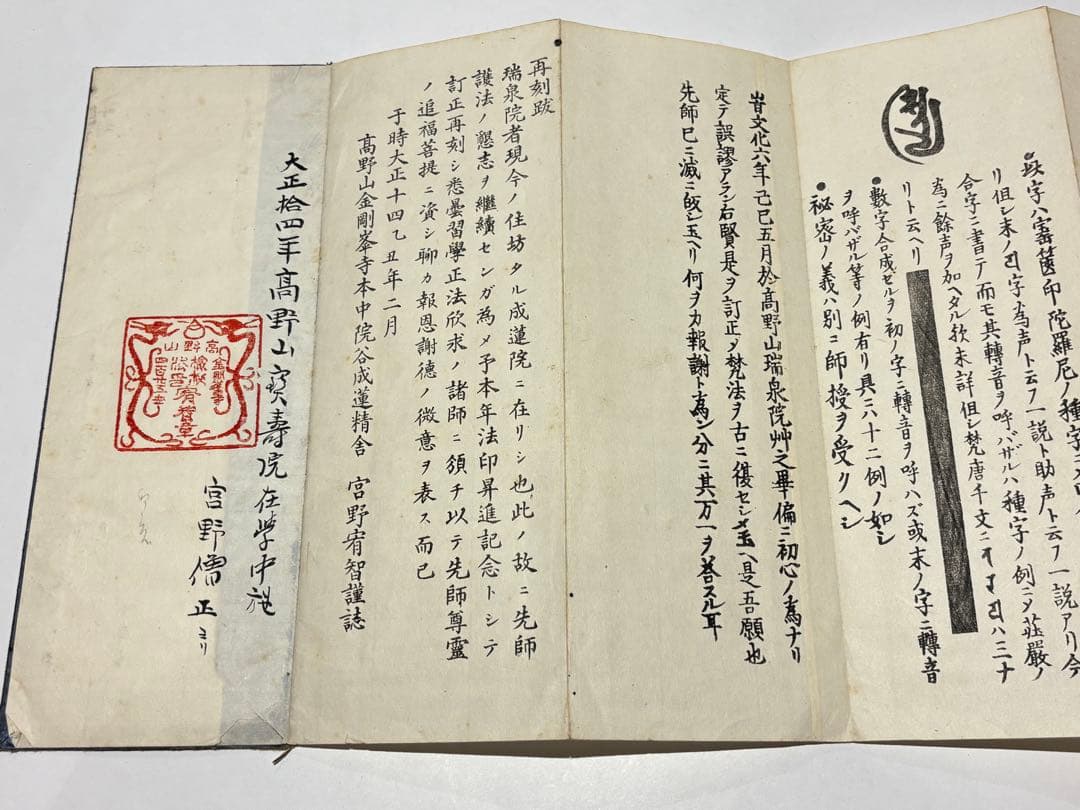 リ但シ末ノ
字為声ト云フ一説ト助声ト云フ一説アリ今
合字ニ書テ而モ其轉音ヲ呼バザルハ種字ノ例ニメ荘嚴ノ
為ニ餘声ヲ加ヘタル欤未詳但シ梵唐千文ニ
ハ三ナ
リト云ヘリ
●數字合成ゼルヲ初ノ字ニ轉音ヲ呼ハズ或末ノ字ニ轉音
ヲ呼バザル等ノ例有リ具ニハ十二例ノ如シ
●祕密ノ義ハ別ニ師授ヲ受クヘシ
旹文化六年己巳五月於高野山瑞泉院艸之畢偏ニ初心ノ為ナリ
定テ誤謬アラン右賢是ヲ訂正メ梵法ヲ古ニ復セシメ玉ヘ是吾願也
先師已ニ滅ニ皈シ玉ヘリ何ヲカ報謝ト為ン分ニ其万一ヲ荅スル耳
再刻跋
瑞泉院者現今ノ住坊タル成蓮院ニ在リシ也此ノ故ニ先師
護法ノ懇志ヲ繼續センガ為メ予本年法印昇進記念トシテ
訂正再刻シ悉曇習學正法欣求ノ諸師ニ頒チ以テ先師尊靈
ノ追福菩提ニ資シ聊カ報恩謝德ノ微意ヲ表ス而已
于時大正十四乙丑年二月
高野山金剛峯寺本中院谷成蓮精舎 宮野宥智謹誌
大正拾四年高野山寳壽院在学中
宮野僧正ヨリ
高野山
金剛峯寺